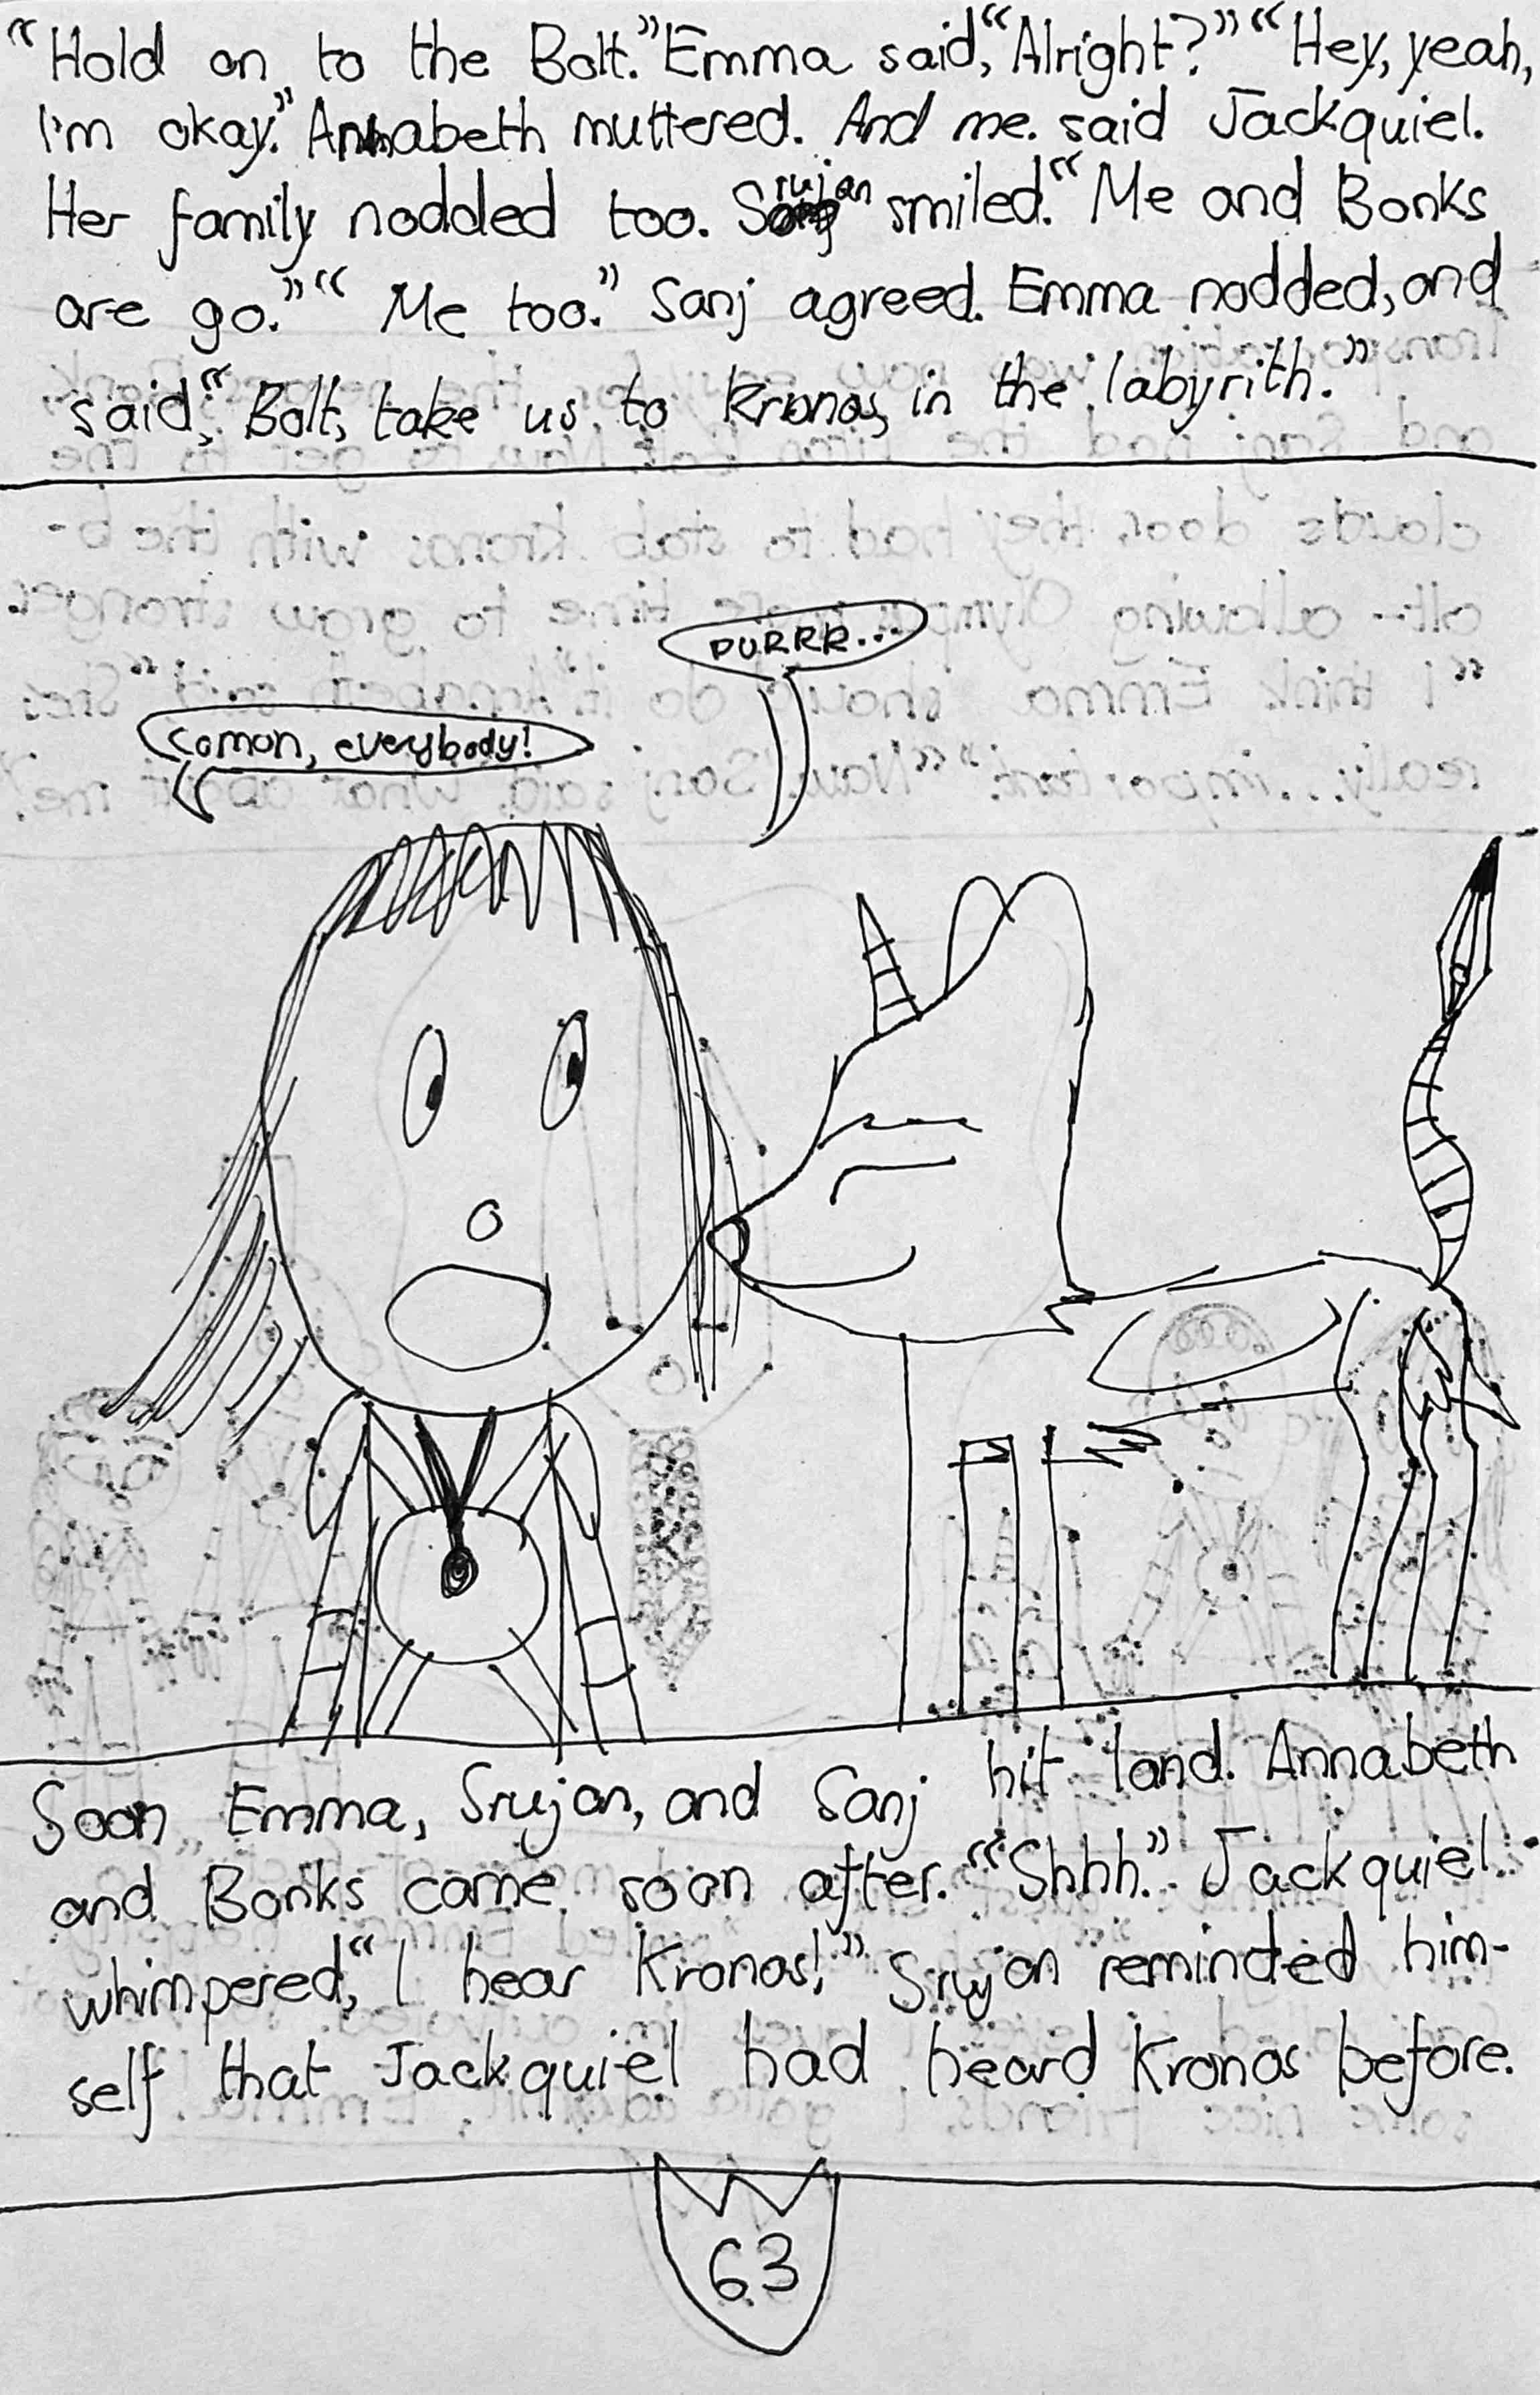 “Hold on to the Bolt.” Emma said, “Alright?” “Hey, yeah,
I'm okay.” Annabeth muttered. And me. said Jackquiel.
Her family nodded too. Srujan smiled. “Me and Bonks
are go.” “Me too.” Sanj agreed. Emma nodded, and
said, “Bolt, take us to Kronos, in the labyrith.”
PURRR...
Comon, everybody!
Soon Emma, Srujan, and Sanj hit land. Annabeth
and Bonks came soon after. “Shhh.” Jackquiel
whimpered, “I hear Kronos!” Srujan reminded him-
self that Jackquiel had heard Kronos before.
63